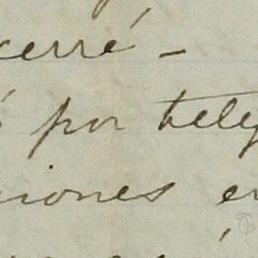 cerré –
por teleg
ciones en